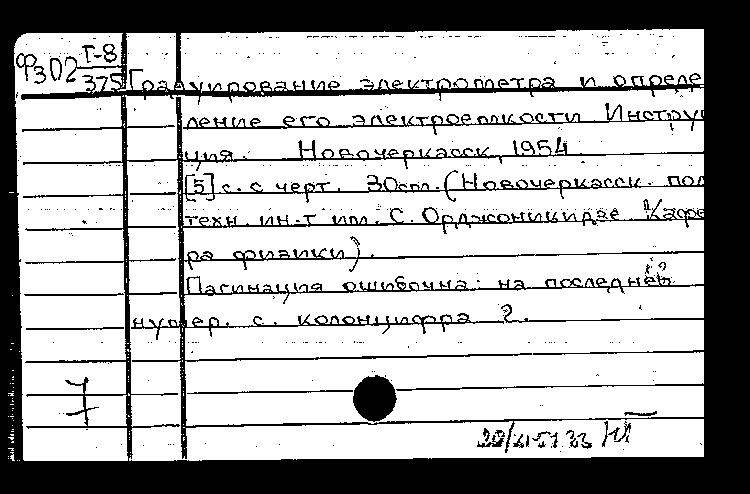 Ф302 Т-8
375
Градуирование электрометра и опреде
ление его электроемкости Инстру
ция. Новочеркасск, 1954
[5] с. с черт. 30см. (Новочеркасск. пол
техн. ин-т им. С. Орджоникидзе Кафе
ра физики).
Пагинация ошибочна: на последней
нумер. с. колонцифра 2.
7